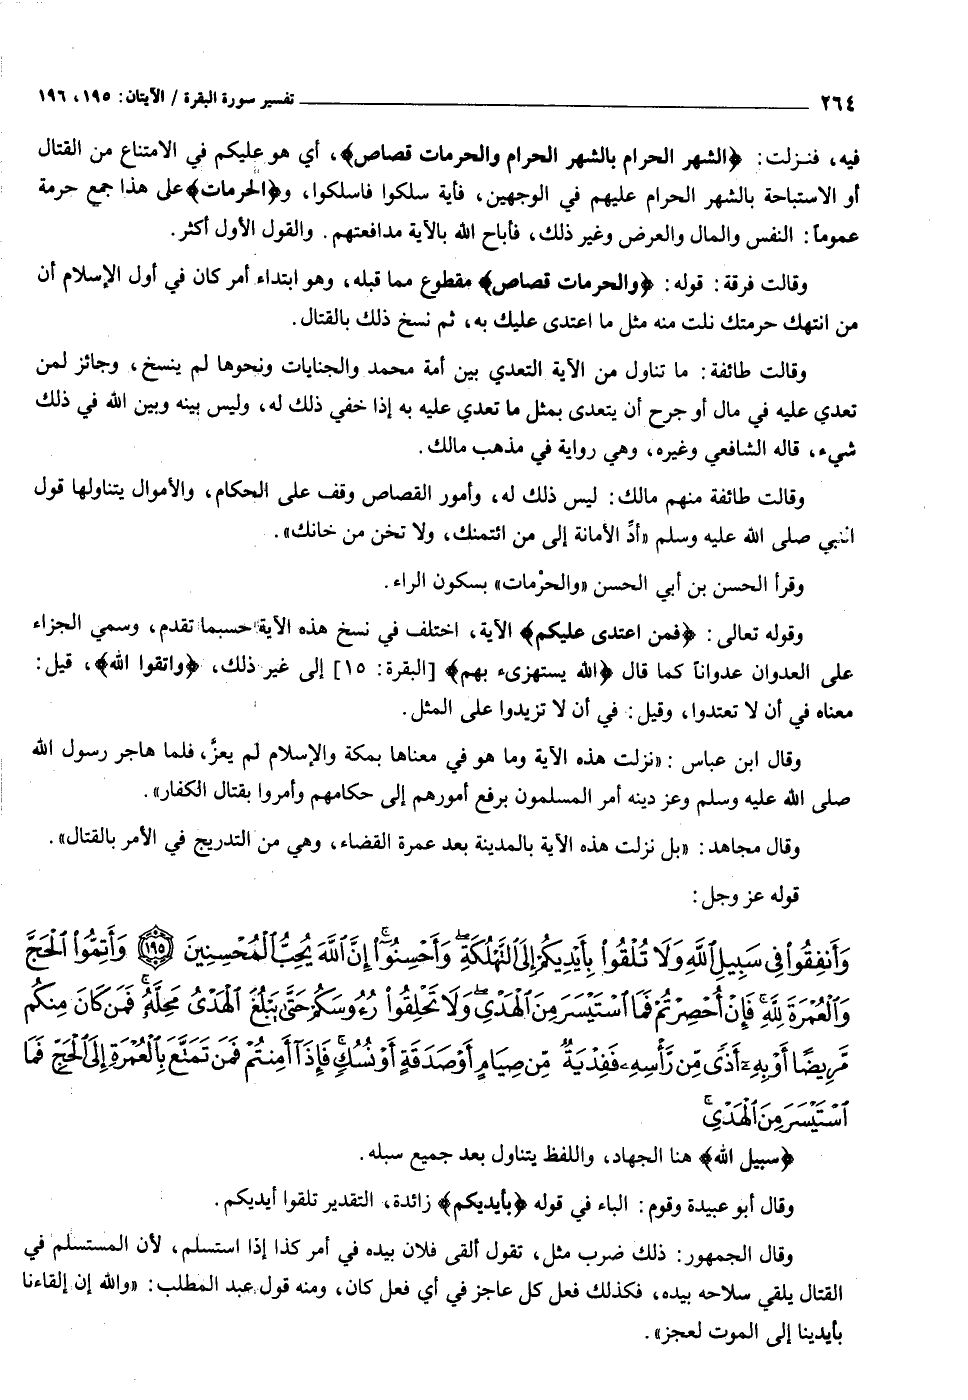 ٢٦٤ ــــــــــــــــــــ تفسير سورة البقرة / الآيتان: ١٩٥، ١٩٦
فيه، فنـزلت: ﴿الشهر الحرام بالشهر الحرام والحرمات قصاص﴾، أي هو عليكم في الامتناع من القتال
أو الاستباحة بالشهر الحرام عليهم في الوجهين، فأية سلكوا فاسلكوا، و﴿الحرمات﴾على هذا جمع حرمة
عموماً: النفس والمال والعرض وغير ذلك، فأباح الله بالآية مدافعتهم. والقول الأول أكثر.
وقالت فرقة: قوله: ﴿والحرمات قصاص﴾ مقطوع مما قبله، وهو ابتداء أمر كان في أول الإسلام أن
من انتهك حرمتك نلت منه مثل ما اعتدى عليك به، ثم نسخ ذلك بالقتال.
وقالت طائفة: ما تناول من الآية التعدي بين أمة محمد والجنايات ونحوها لم ينسخ، وجائز لمن
تعدي عليه في مال أو جرح أن يتعدى بمثل ما تعدي عليه به إذا خفي ذلك له، وليس بينه وبين الله في ذلك
شيء، قاله الشافعي وغيره، وهي رواية في مذهب مالك.
وقالت طائفة منهم مالك: ليس ذلك له، وأمور القصاص وقف على الحكام، والأموال يتناولها قول
النبي صلى الله عليه وسلم «أدِّ الأمانة إلى من ائتمنك، ولا تخن من خانك».
وقرأ الحسن بن أبي الحسن «والحرْمات» بسكون الراء.
وقوله تعالى: ﴿فمن اعتدى عليكم﴾ الآية، اختلف في نسخ هذه الآية حسبما تقدم، وسمي الجزاء
على العدوان عدواناً كما قال ﴿الله يستهزىء بهم﴾ [البقرة: ١٥] إلى غير ذلك، ﴿واتقوا الله﴾، قيل:
معناه في أن لا تعتدوا، وقيل: في أن لا تزيدوا على المثل.
وقال ابن عباس: «نزلت هذه الآية وما هو في معناها بمكة والإسلام لم يعزَّ، فلما هاجر رسول الله
صلى الله عليه وسلم وعز دينه أمر المسلمون برفع أمورهم إلى حكامهم وأمروا بقتال الكفار».
وقال مجاهد: «بل نزلت هذه الآية بالمدينة بعد عمرة القضاء، وهي من التدريج في الأمر بالقتال».
قوله عز وجل:
وَأَنفِقُوا۟ فِى سَبِيلِ ٱللَّهِ وَلَا تُلْقُوا۟ بِأَيْدِيكُمْ إِلَى ٱلتَّهْلُكَةِ ۛ وَأَحْسِنُوٓا۟ ۛ إِنَّ ٱللَّهَ يُحِبُّ ٱلْمُحْسِنِينَ ١٩٥ وَأَتِمُّوا۟ ٱلْحَجَّ
وَٱلْعُمْرَةَ لِلَّهِ ۚ فَإِنْ أُحْصِرْتُمْ فَمَا ٱسْتَيْسَرَ مِنَ ٱلْهَدْىِ ۖ وَلَا تَحْلِقُوا۟ رُءُوسَكُمْ حَتَّىٰ يَبْلُغَ ٱلْهَدْىُ مَحِلَّهُۥ ۚ فَمَن كَانَ مِنكُم
مَّرِيضًا أَوْ بِهِۦٓ أَذًى مِّن رَّأْسِهِۦ فَفِدْيَةٌ مِّن صِيَامٍ أَوْ صَدَقَةٍ أَوْ نُسُكٍ ۚ فَإِذَآ أَمِنتُمْ فَمَن تَمَتَّعَ بِٱلْعُمْرَةِ إِلَى ٱلْحَجِّ فَمَا
ٱسْتَيْسَرَ مِنَ ٱلْهَدْىِ ۚ
﴿سبيل الله﴾ هنا الجهاد، واللفظ يتناول بعد جميع سبله.
وقال أبو عبيدة وقوم: الباء في قوله ﴿بأيديكم﴾ زائدة، التقدير تلقوا أيديكم.
وقال الجمهور: ذلك ضرب مثل، تقول ألقى فلان بيده في أمر كذا إذا استسلم، لأن المستسلم في
القتال يلقي سلاحه بيده، فكذلك فعل كل عاجز في أي فعل كان، ومنه قول عبد المطلب: «والله إن إلقاءنا
بأيدينا إلى الموت لعجز».